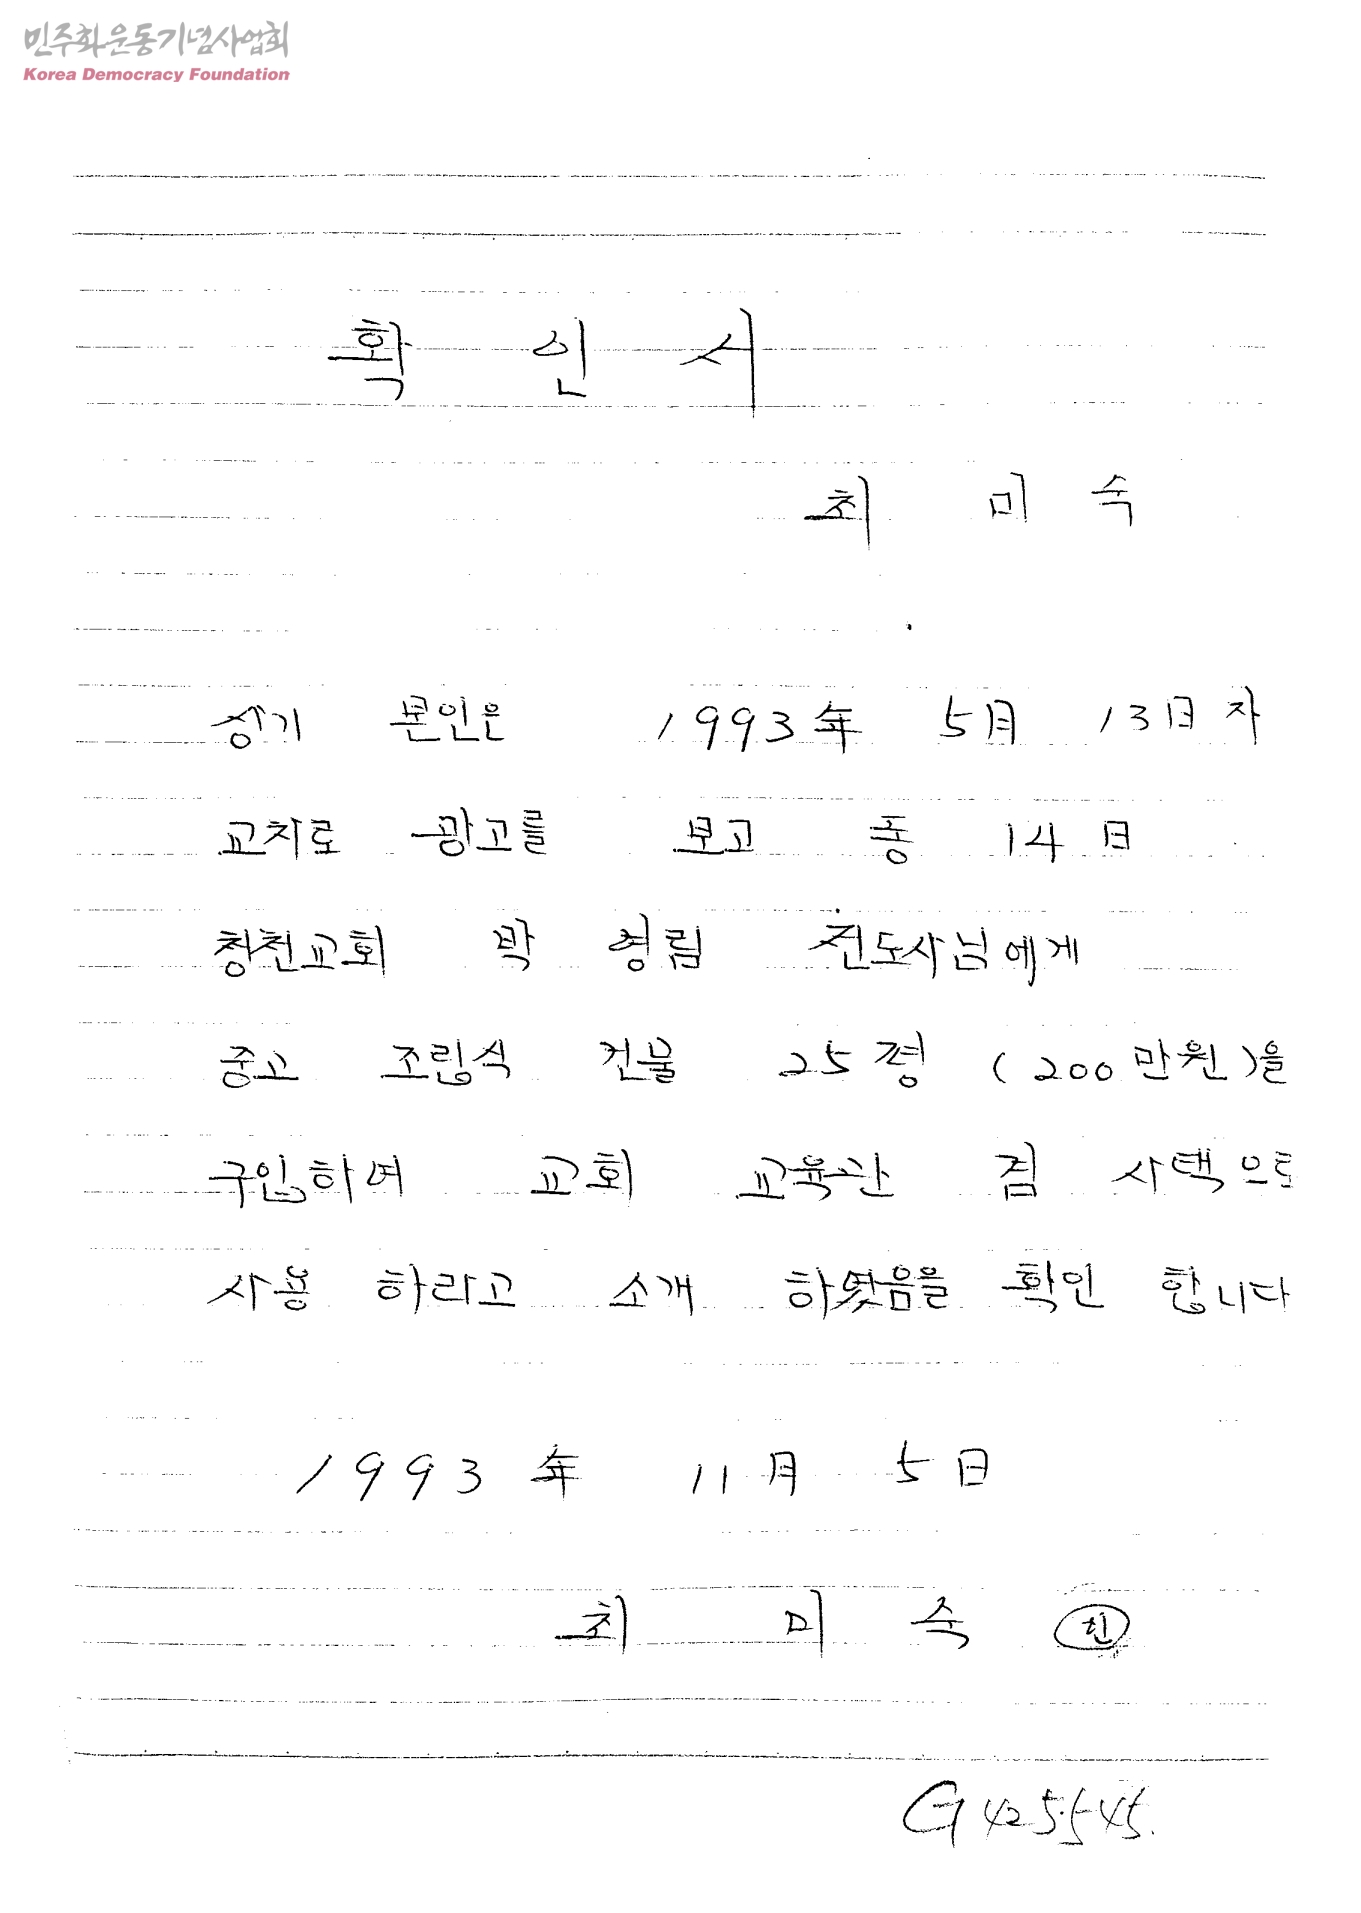 민주화운동기념사업회
Korea Democracy Foundation
확 인 서
최 미 숙
상기 본인은 1993年 5月 13日자
교차로 광고를 보고 동 14日
창천교회 박 영림 전도사님에게
중고 조립식 건물 25평 (200만원)을
구입하여 교회 교육관 겸 사택으로
사용 하라고 소개 하였음을 확인 합니다
1993年 11月 5日
최 미 숙
G425545.